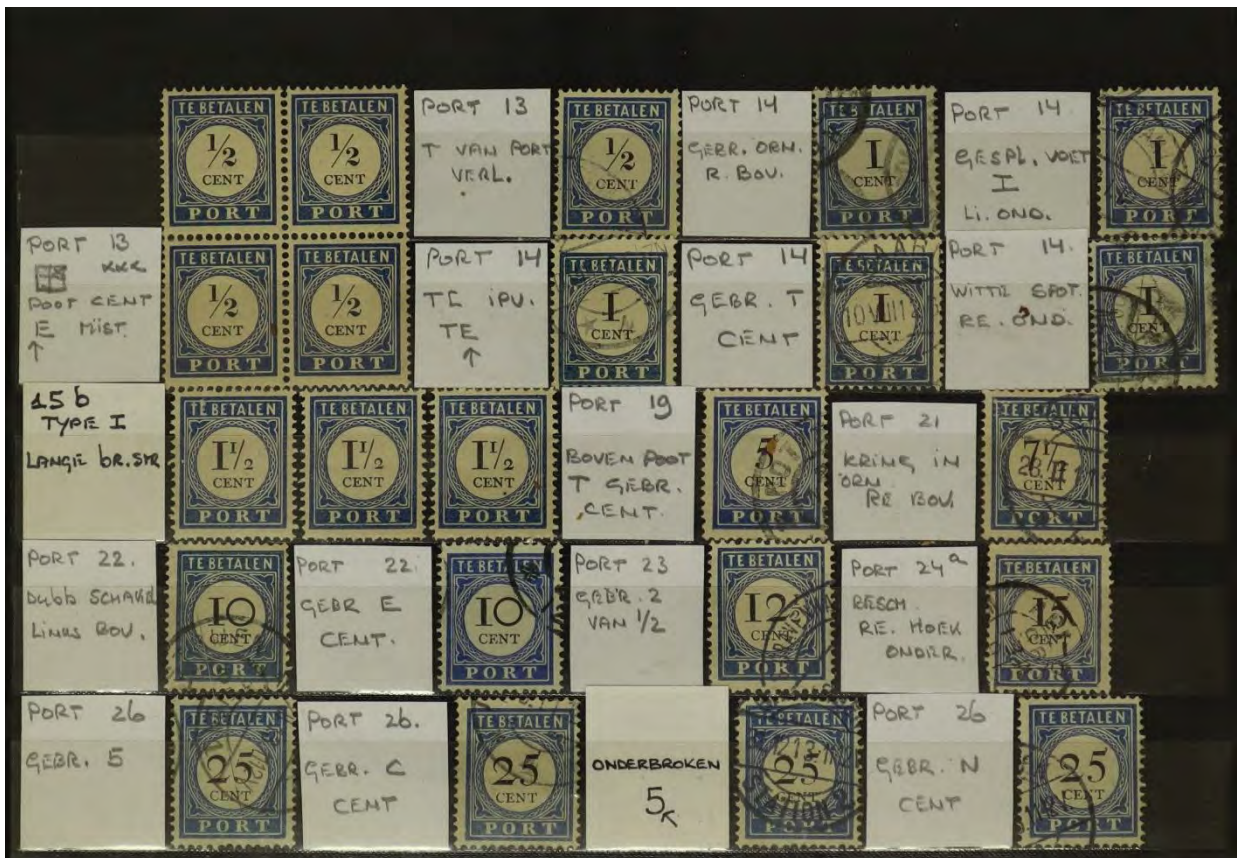 TE BETALEN
1/2
CENT
PORT
TE BETALEN
1/2
CENT
PORT
PORT 13
T VAN PORT
VERL.
TE BETALEN
1/2
CENT
PORT
PORT 14
GEBR. ORN.
R. BOV.
TE BETALEN
1
CENT
PORT
PORT 14
GESPL. VOET
I
LI. OND.
TE BETALEN
1
CENT
PORT
PORT 13
POOT CENT
E MIST.
↑
TE BETALEN
1/2
CENT
PORT
TE BETALEN
1/2
CENT
PORT
PORT 14
TE IPV.
TE
↑
TE BETALEN
1
CENT
PORT
PORT 14
GEBR. T
CENT
TE BETALEN
1
CENT
PORT
PORT 14.
WITTE SPOT.
RE. OND.
TE BETALEN
1
CENT
PORT
15 b
TYPE I
LANGE br.STR
TE BETALEN
1 1/2
CENT
PORT
TE BETALEN
1 1/2
CENT
PORT
TE BETALEN
1 1/2
CENT
PORT
PORT 19
BOVEN POOT
T GEBR.
CENT.
TE BETALEN
5
CENT
PORT
PORT 21
KRING IN
ORN.
RE BOV.
TE BETALEN
7 1/2
CENT
PORT
PORT 22.
Dubb SCHAKEL
LINKS BOV.
TE BETALEN
10
CENT
PORT
PORT 22.
GEBR E
CENT.
TE BETALEN
10
CENT
PORT
PORT 23
GEBR. 2
VAN 1/2
TE BETALEN
12
CENT
PORT
PORT 24a
BESCH.
RE. HOEK
ONDER.
TE BETALEN
15
CENT
PORT
PORT 26
GEBR. 5
TE BETALEN
25
CENT
PORT
PORT 26.
GEBR. C
CENT
TE BETALEN
25
CENT
PORT
ONDERBROKEN
5
TE BETALEN
25
CENT
PORT
STATION
PORT 26
GEBR. N
CENT
TE BETALEN
25
CENT
PORT